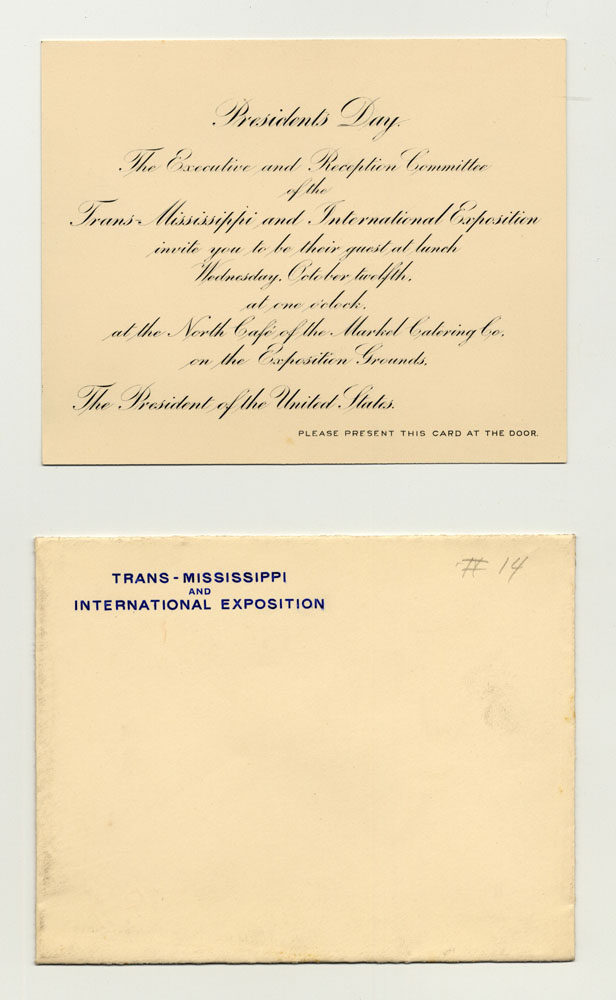 Presidents Day.
The Executive and Reception Committee
of the
Trans-Mississippi and International Exposition
invite you to be their guest at lunch
Wednesday, October twelfth,
at one o'clock,
at the North Café of the Market Catering Co.
on the Exposition Grounds.
The President of the United States.
PLEASE PRESENT THIS CARD AT THE DOOR.
TRANS-MISSISSIPPI
AND
INTERNATIONAL EXPOSITION
# 14